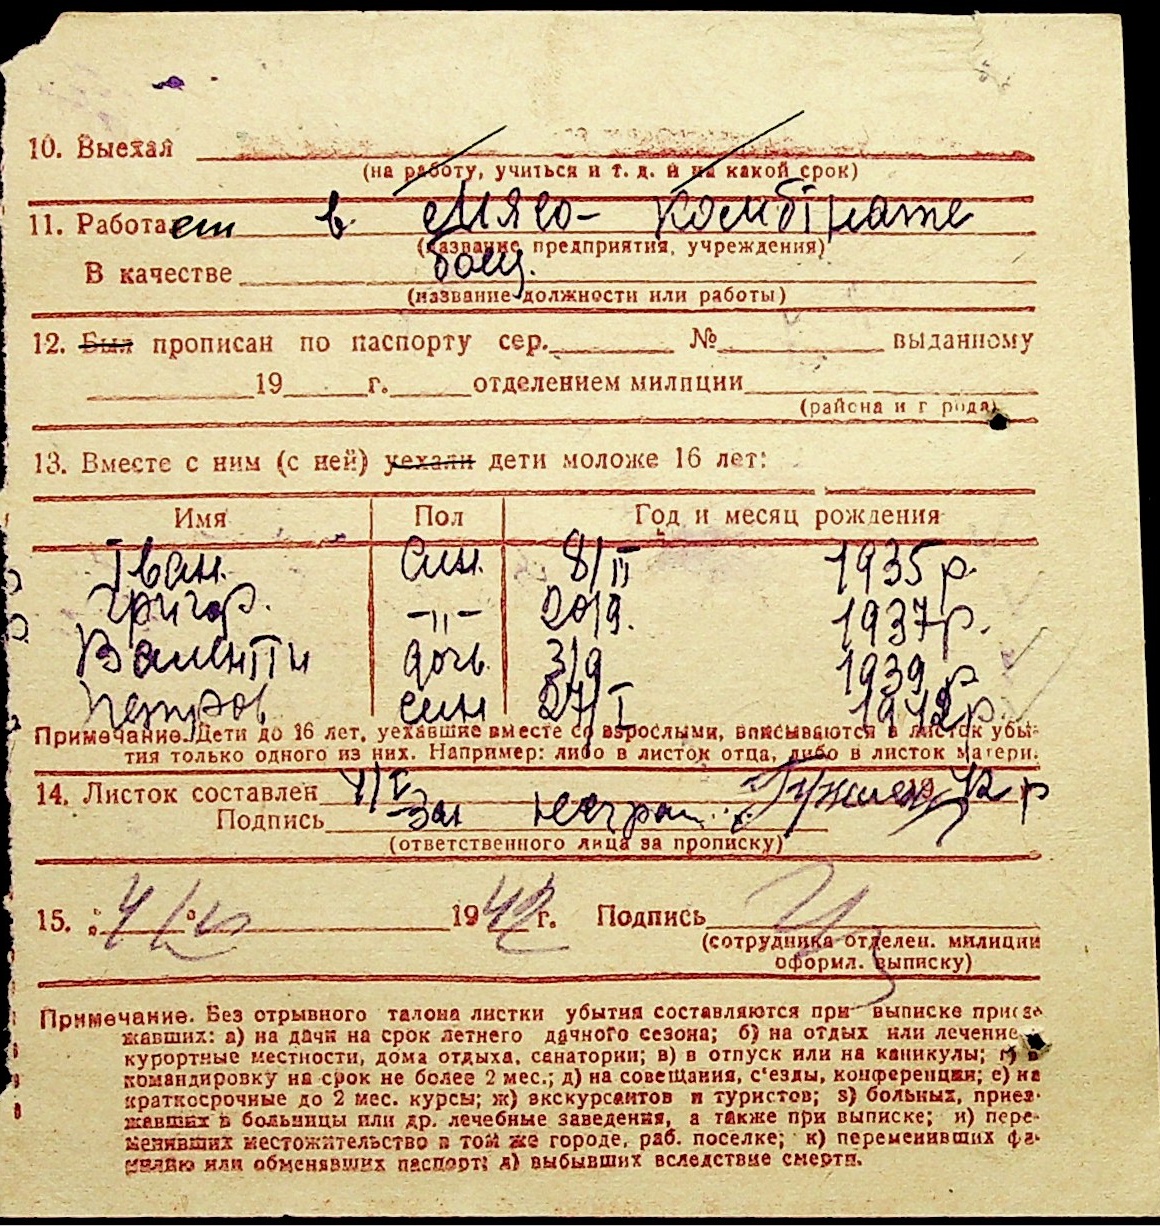 10. Выехал
(на работу, учиться и т. д. и на какой срок)
11. Работает в мясо- комбінате
(название предприятия, учреждения)
В качестве боец.
(название должности или работы)
12. Был прописан по паспорту сер. № выданному
19 г. отделением милиции
(района и города)
13. Вместе с ним (с ней) уехали дети моложе 16 лет:
Имя Пол Год и месяц рождения
Іван. син. 8/II 1935 р.
Григор. -„- 20/9. 1937 р.
Валенти дочь 3/9 1939 р
Петров син 27/I 1942 р.
Примечание. Дети до 16 лет, уехавшие вместе со взрослыми, вписываются в листок убы-
тия только одного из них. Например: либо в листок отца, либо в листок матери.
14. Листок составлен 42 р
Подпись
(ответственного лица за прописку)
15. 1942 г. Подпись
(сотрудника отделен. милиции
оформл. выписку)
Примечание. Без отрывного талона листки убытия составляются при выписке приез-
жавших: а) на дачи на срок летнего дачного сезона; б) на отдых или лечение в
курортные местности, дома отдыха, санатории; в) в отпуск или на каникулы; г) в
командировку на срок не более 2 мес.; д) на совещания, с'езды, конференции; е) на
краткосрочные до 2 мес. курсы; ж) экскурсантов и туристов; з) больных, приез-
жавших в больницы или др. лечебные заведения, а также при выписке; и) пере-
менивших местожительство в том же городе, раб. поселке; к) переменивших фа-
милию или обменявших паспорт; л) выбывших вследствие смерти.